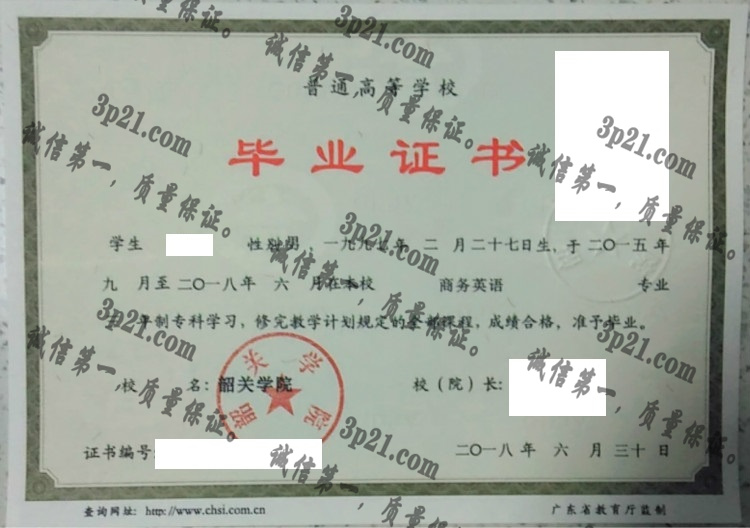 普通高等学校
毕业证书
学生 性别男，一九九七年 二 月二十七日生，于二〇一五年
九 月至二〇一八年 六 月在本校 商务英语 专业
年制专科学习，修完教学计划规定的全部课程，成绩合格，准予毕业。
校 名：韶关学院 校（院）长：
韶关学院
证书编号： 二〇一八年 六 月三十日
查询网址：http://www.chsi.com.cn 广东省教育厅监制
3p21.com
诚信第一，质量保证。
3p21.com
诚信第一，质量保证。
3p21.com
诚信第一，质量保证。
3p21.com
诚信第一，质量保证。
3p21.com
诚信第一，质量保证。
3p21.com
诚信第一，质量保证。
3p21.com
诚信第一，质量保证。
3p21.com